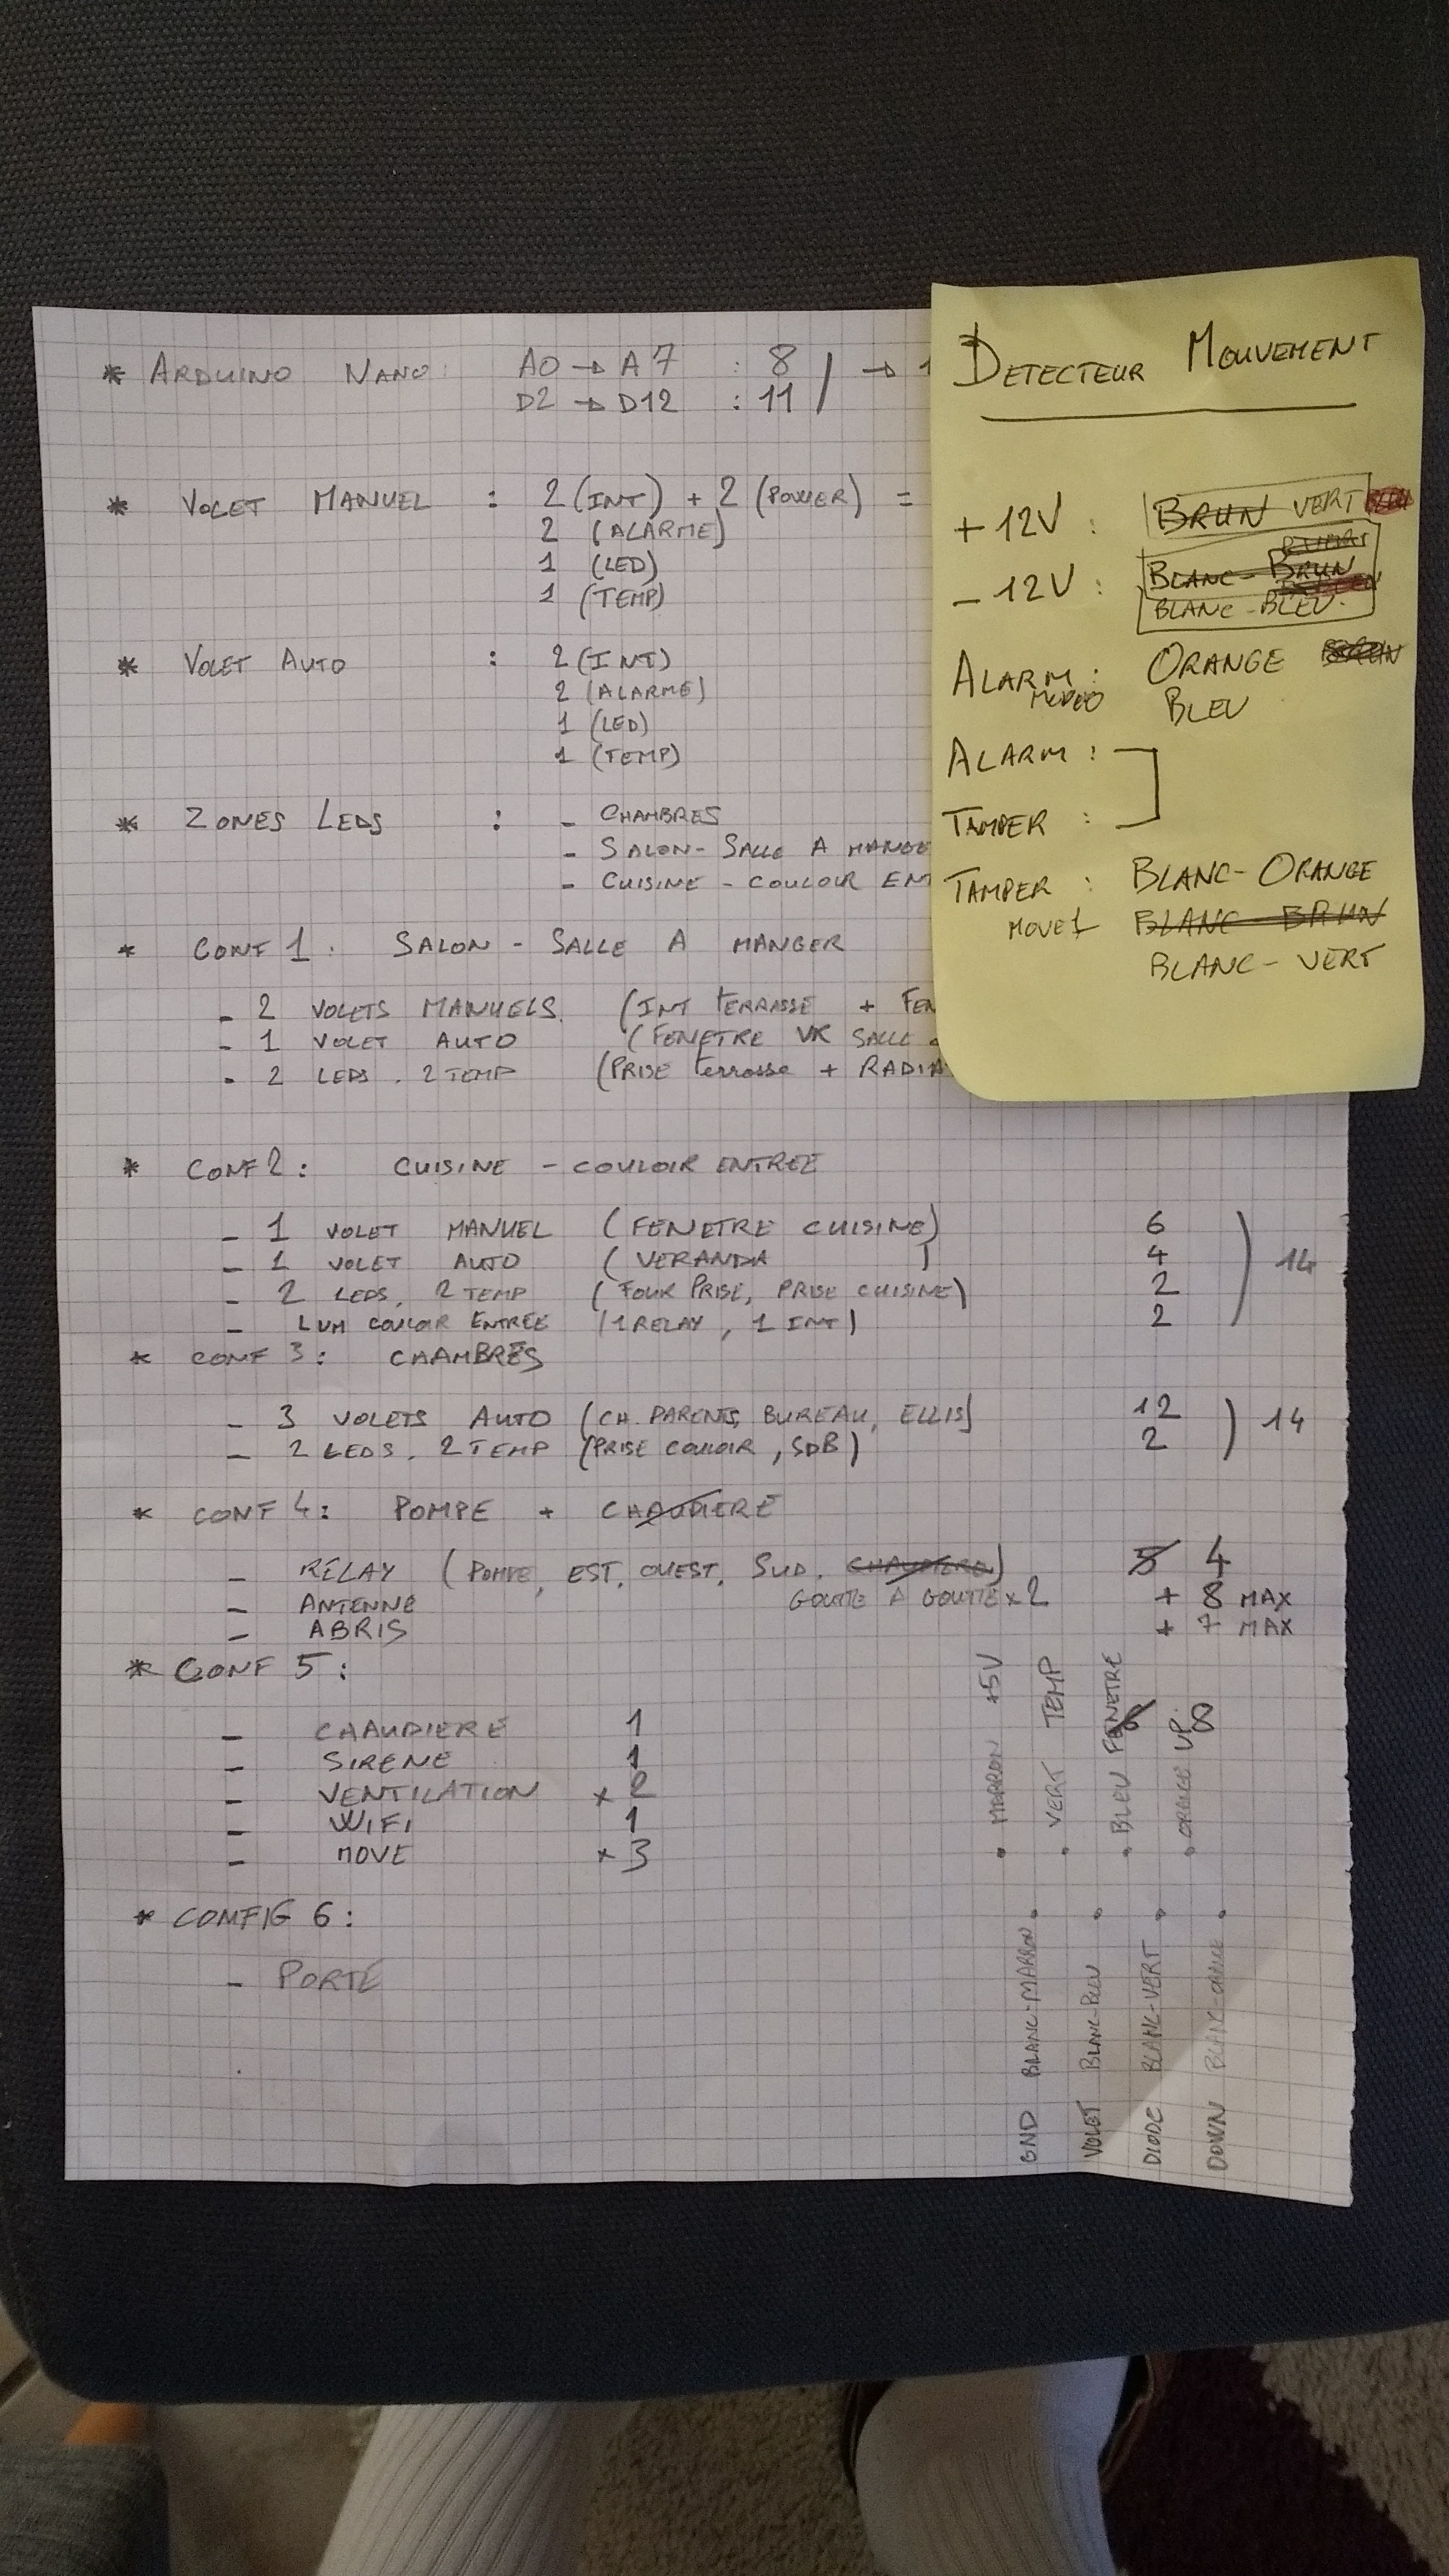 * ARDUINO NANO: A0 → A7 : 8
D2 → D12 : 11 → 1
* VOLET MANUEL : 2 (INT) + 2 (POWER) =
2 (ALARME)
1 (LED)
1 (TEMP)
* VOLET AUTO : 2 (INT)
2 (ALARME)
1 (LED)
1 (TEMP)
* ZONES LEDS : - CHAMBRES
- SALON - SALLE A MANGE
- CUISINE - COULOIR EN
* CONF 1 : SALON - SALLE A MANGER
- 2 VOLETS MANUELS. (INT TERRASSE + FEN
- 1 VOLET AUTO (FENETRE VR SALLE
- 2 LEDS. 2 TEMP (PRISE terrasse + RADIA
* CONF 2 : CUISINE - COULOIR ENTREE
- 1 VOLET MANUEL (FENETRE CUISINE) 6
- 1 VOLET AUTO (VERANDA ) 4
- 2 LEDS. 2 TEMP (FOUR PRISE, PRISE CUISINE) 2
- LUM COULOIR ENTREE (1 RELAY, 1 INT) 2
) 14
* CONF 3 : CHAMBRES
- 3 VOLETS AUTO (CH. PARENTS, BUREAU, ELLIS) 12
- 2 LEDS. 2 TEMP (PRISE COULOIR, SDB) 2
) 14
* CONF 4 : POMPE + CHAUDIERE
- RELAY (POMPE, EST, OUEST, SUD, CHAUDIERE) 5 4
- ANTENNE GOUTTE A GOUTTE x 2 + 8 MAX
- ABRIS + 7 MAX
* CONF 5 :
- CHAUDIERE 1
- SIRENE 1
- VENTILATION x 2
- WIFI 1
- MOVE x 3
8
* CONFIG 6 :
- PORTE
• MARRON +5V
• VERT TEMP
• BLEU FENETRE
• ORANGE UP.
GND BLANC-MARRON •
VOLET BLANC-BLEU •
DIODE BLANC-VERT •
DOWN BLANC-ORANGE •
DETECTEUR MOUVEMENT
+ 12V : BRUN VERT
- 12V : BLANC-BRUN
BLANC-BLEU.
ALARM : ORANGE
BLEU
ALARM :
TAMPER :
TAMPER : BLANC-ORANGE
MOVE 1 BLANC-BRUN
BLANC-VERT